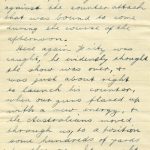 against the counter attack
that was bound to come
during the course of the
afternoon.
Here again Fritz was
caught, he evidently thought
the show was over, &
was just about right
to launch his counter,
when our guns played up
with a new energy, &
the Australians moved
through us to a position
some hundreds of yards